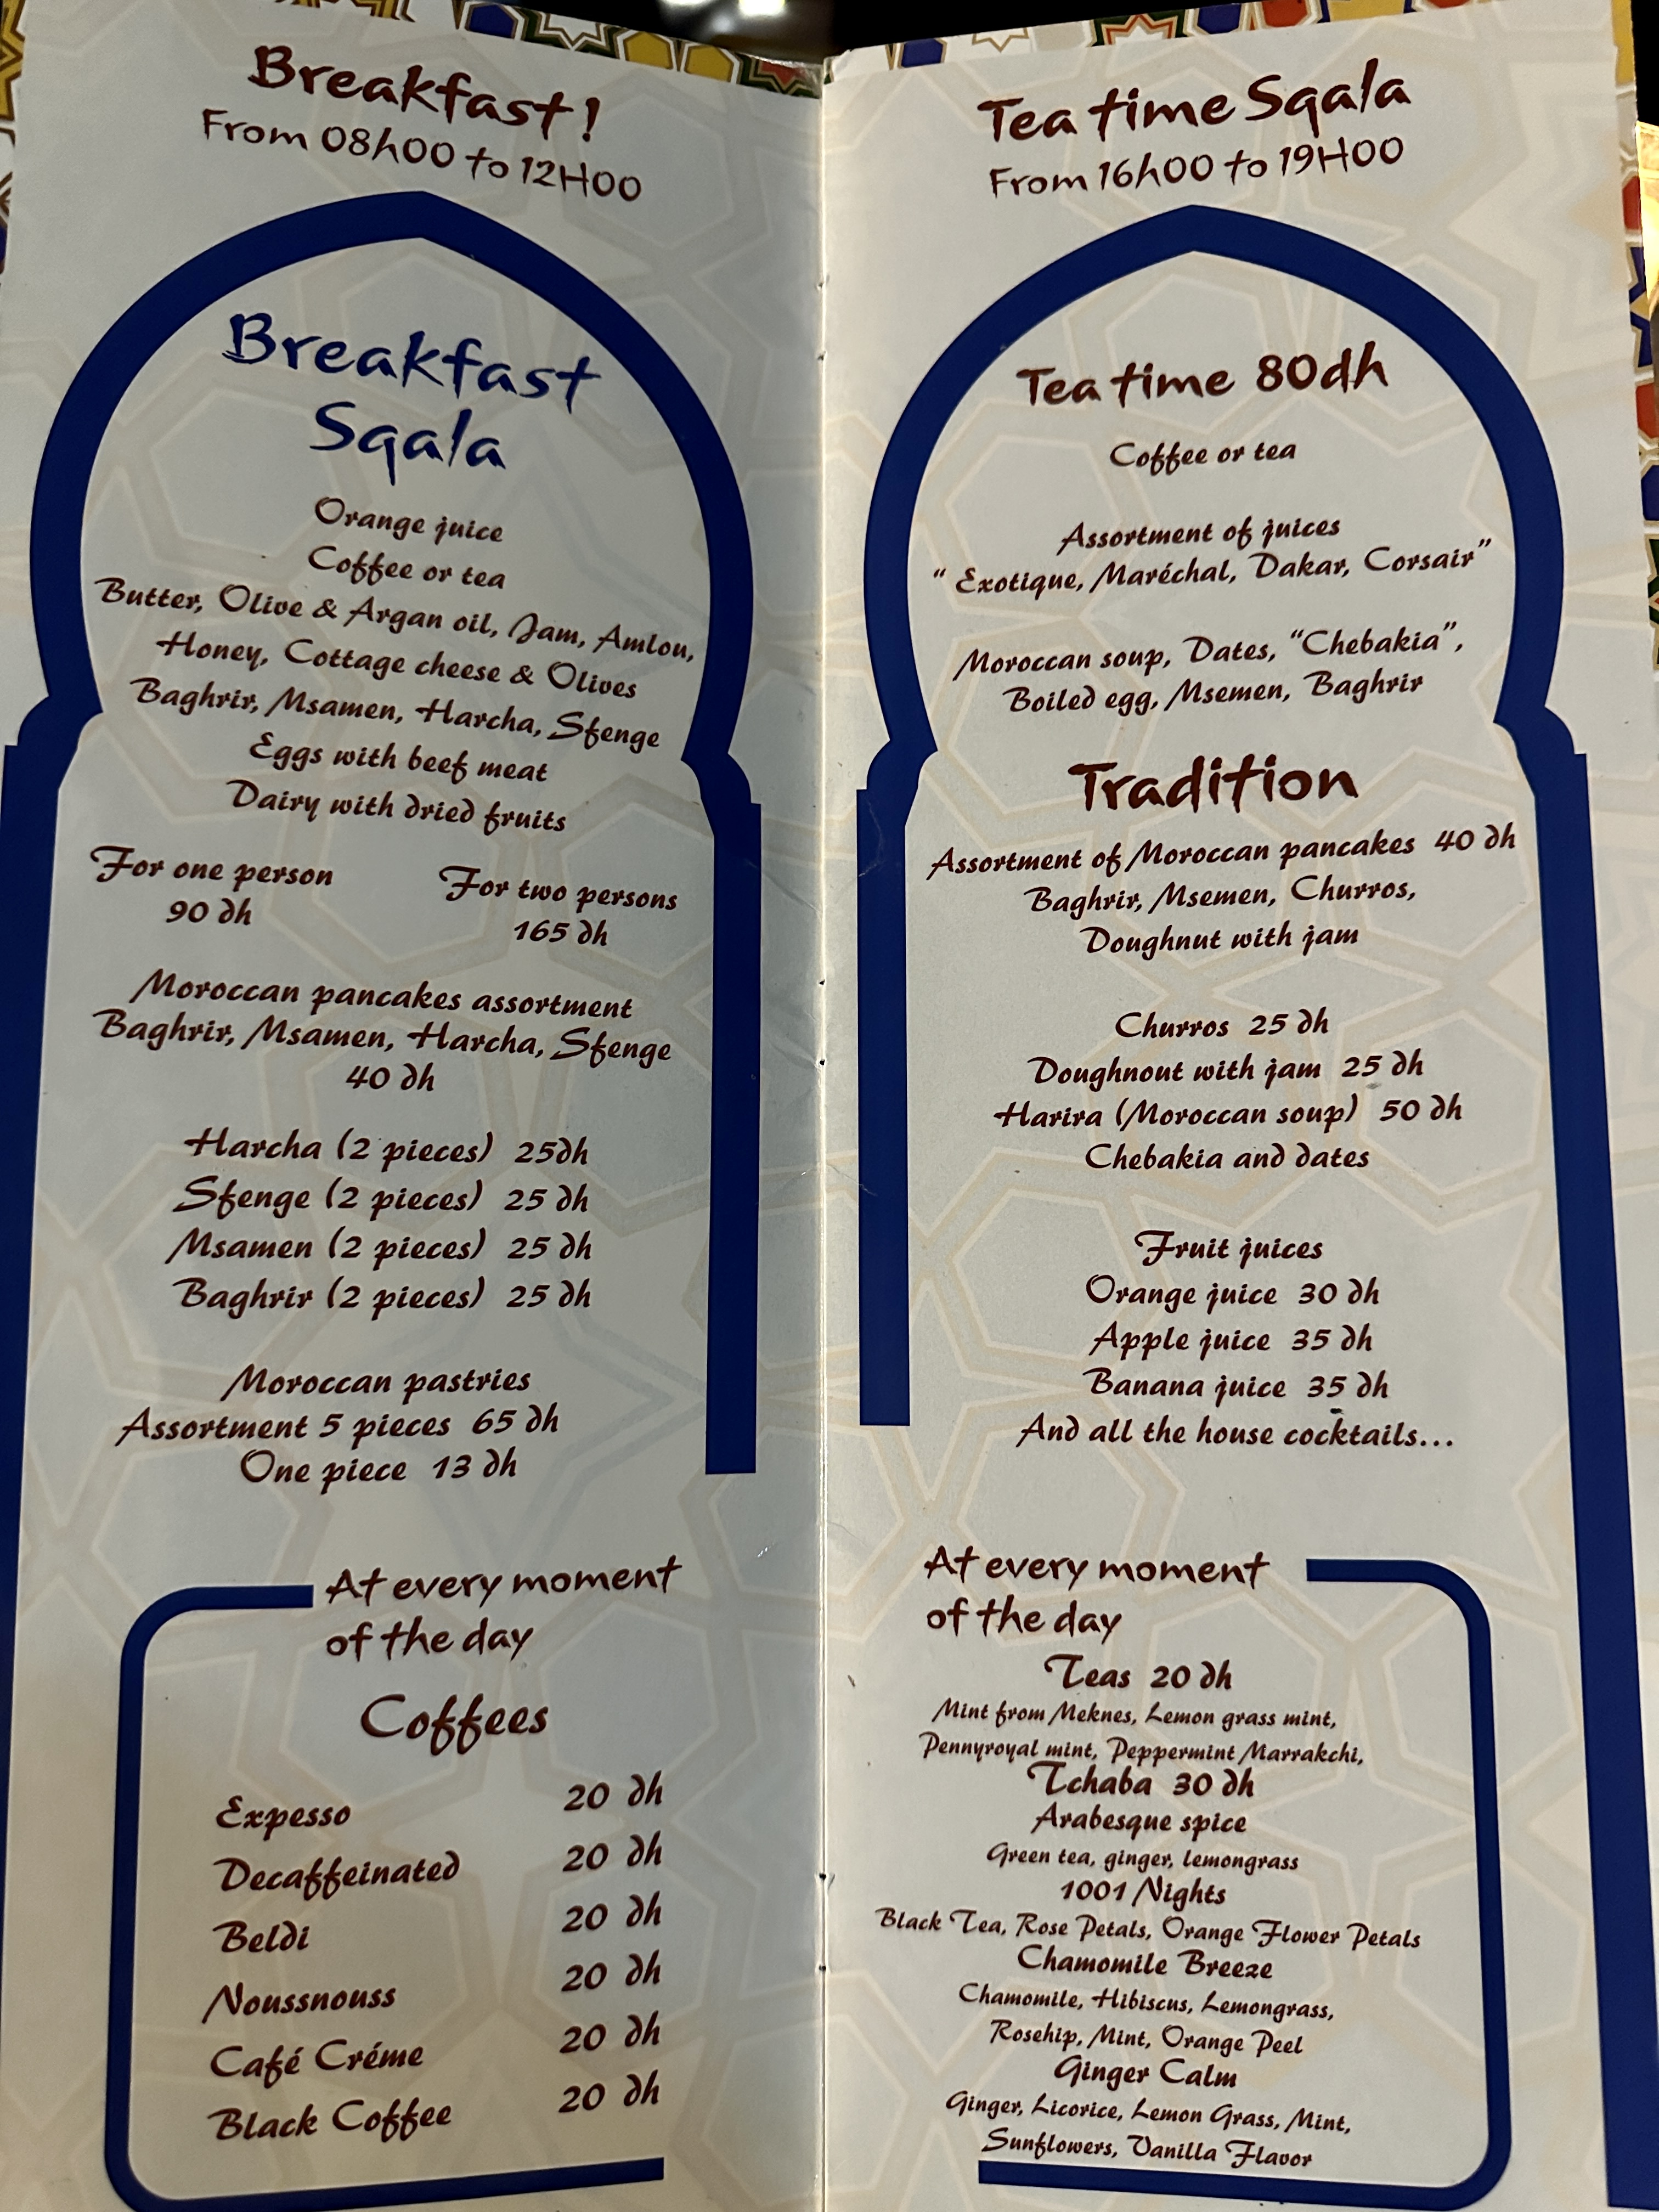 Breakfast!
From 08h00 to 12H00
Breakfast
Sqala
Orange juice
Coffee or tea
Butter, Olive & Argan oil, Jam, Amlou,
Honey, Cottage cheese & Olives
Baghrir, Msamen, Harcha, Sfenge
Eggs with beef meat
Dairy with dried fruits
For one person
90 dh
For two persons
165 dh
Moroccan pancakes assortment
Baghrir, Msamen, Harcha, Sfenge
40 dh
Harcha (2 pieces) 25dh
Sfenge (2 pieces) 25 dh
Msamen (2 pieces) 25 dh
Baghrir (2 pieces) 25 dh
Moroccan pastries
Assortment 5 pieces 65 dh
One piece 13 dh
At every moment
of the day
Coffees
Expesso 20 dh
Decaffeinated 20 dh
Beldi 20 dh
Noussnouss 20 dh
Café Créme 20 dh
Black Coffee 20 dh
Tea time Sqala
From 16h00 to 19H00
Tea time 80dh
Coffee or tea
Assortment of juices
“ Exotique, Maréchal, Dakar, Corsair”
Moroccan soup, Dates, “Chebakia”,
Boiled egg, Msemen, Baghrir
Tradition
Assortment of Moroccan pancakes 40 dh
Baghrir, Msemen, Churros,
Doughnut with jam
Churros 25 dh
Doughnout with jam 25 dh
Harira (Moroccan soup) 50 dh
Chebakia and dates
Fruit juices
Orange juice 30 dh
Apple juice 35 dh
Banana juice 35 dh
And all the house cocktails...
At every moment
of the day
Teas 20 dh
Mint from Meknes, Lemon grass mint,
Pennyroyal mint, Peppermint Marrakchi,
Tchaba 30 dh
Arabesque spice
Green tea, ginger, lemongrass
1001 Nights
Black Tea, Rose Petals, Orange Flower Petals
Chamomile Breeze
Chamomile, Hibiscus, Lemongrass,
Rosehip, Mint, Orange Peel
Ginger Calm
Ginger, Licorice, Lemon Grass, Mint,
Sunflowers, Vanilla Flavor